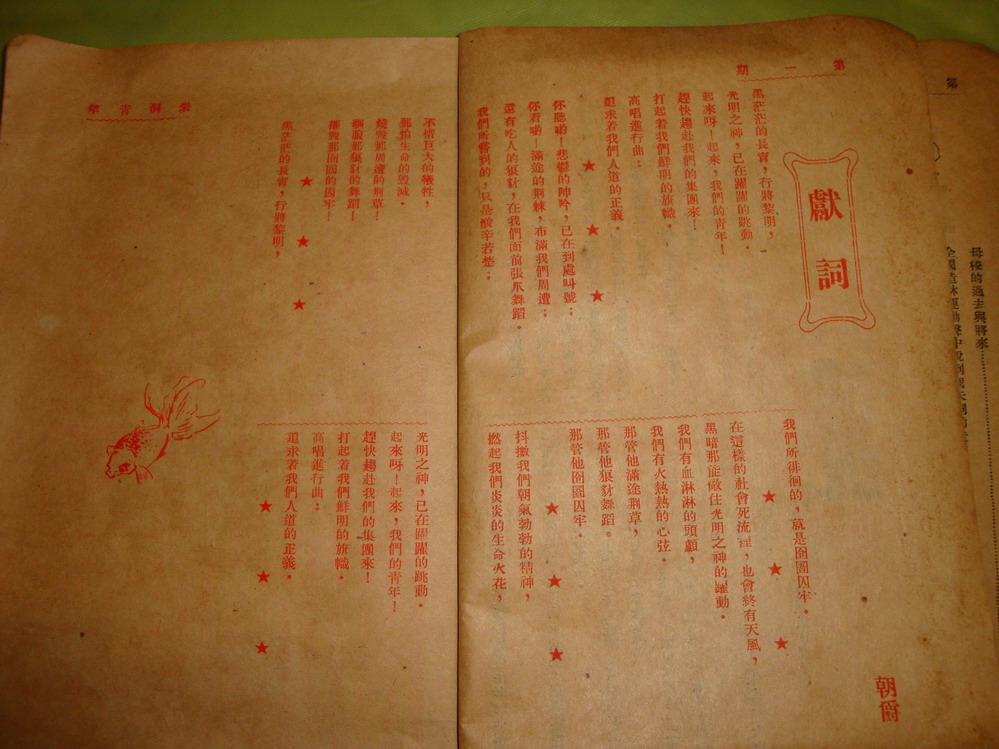 第
母校的過去與將來
第一期
獻詞
朝爾
黑茫茫的長宵，行將黎明，
光明之神，已在躍躍的跳動．
起來呀！起來，我們的青年！
趕快趨赴我們的集團來！
打起着我們鮮明的旗幟．
高唱進行曲：
追求着我們人道的正義．
你聽喲！悲鬱的陣吟，已在到處叫號；
你看喲！滿途的荆棘，布滿我們周遭；
還有吃人的狼豺，在我們面前張爪舞蹈．
我們所嘗到的，只是酸辛苦楚；
我們所徘徊的，就是囹圄囚牢．
在這樣的社會死流裡，也會終有天風，
黑暗那能敵住光明之神的躍動．
我們有血淋淋的頭顱，
我們有火熱熱的心弦．
那管他滿途荆草，
那管他狼豺舞蹈。
那管他囹圄囚牢．
抖擻我們朝氣勃勃的精神，
燃起我們炎炎的生命火花，
不惜巨大的犧牲，
那怕生命的毀滅．
燒毀那周遭的荆草！
馴服那狼豺的舞蹈！
摧毀那囹圄的囚牢！
黑茫茫的長宵，行將黎明，
光明之神，已在躍躍的跳動．
起來呀！起來，我們的青年！
趕快趨赴我們的集團來！
打起着我們鮮明的旗幟．
高唱進行曲：
追求着我們人道的正義．